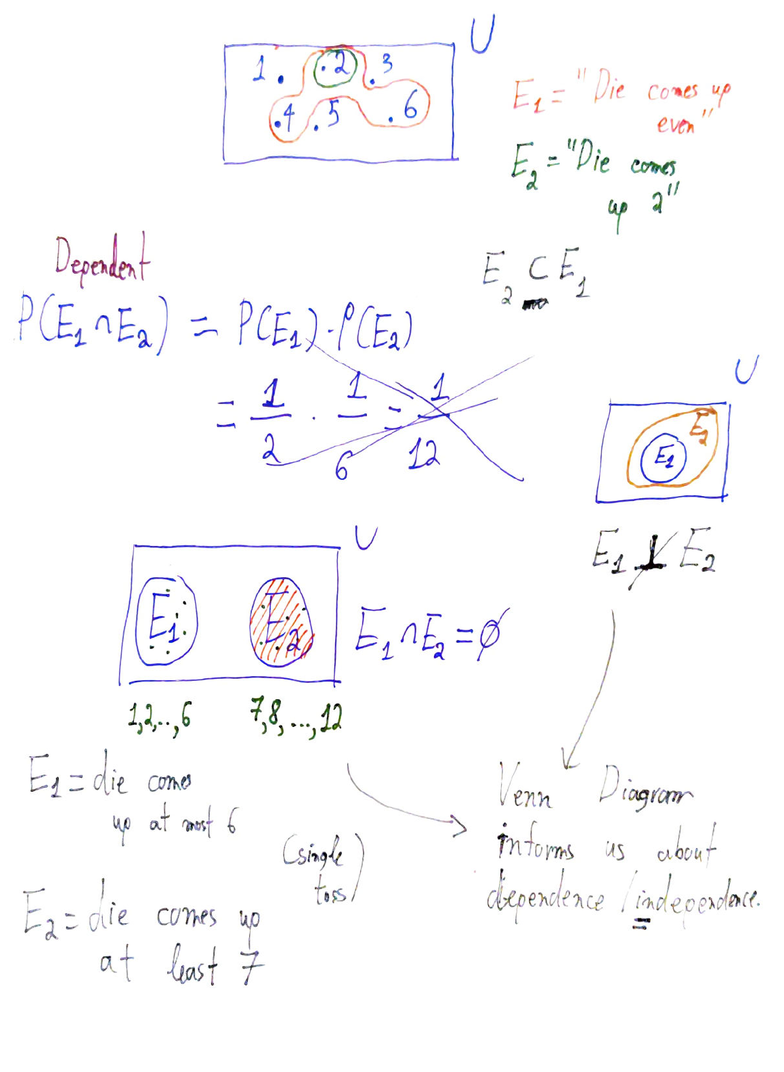 U
1 . . 2 . 3
. 4 . 5 . 6
E₁ = "Die comes up
even"
E₂ = "Die comes
up 2"
E₂ ⊂ E₁
Dependent
P(E₁ ∩ E₂) = P(E₁) · P(E₂)
= 1/2 · 1/6 = 1/12
U
E₁ E₂
E₁ ⊥̸ E₂
U
E₁ E₂
E₁ ∩ E₂ = ∅
1,2,..,6 7,8,...,12
E₁ = die comes
up at most 6
(single
toss)
E₂ = die comes up
at least 7
Venn Diagram
informs us about
dependence / independence.